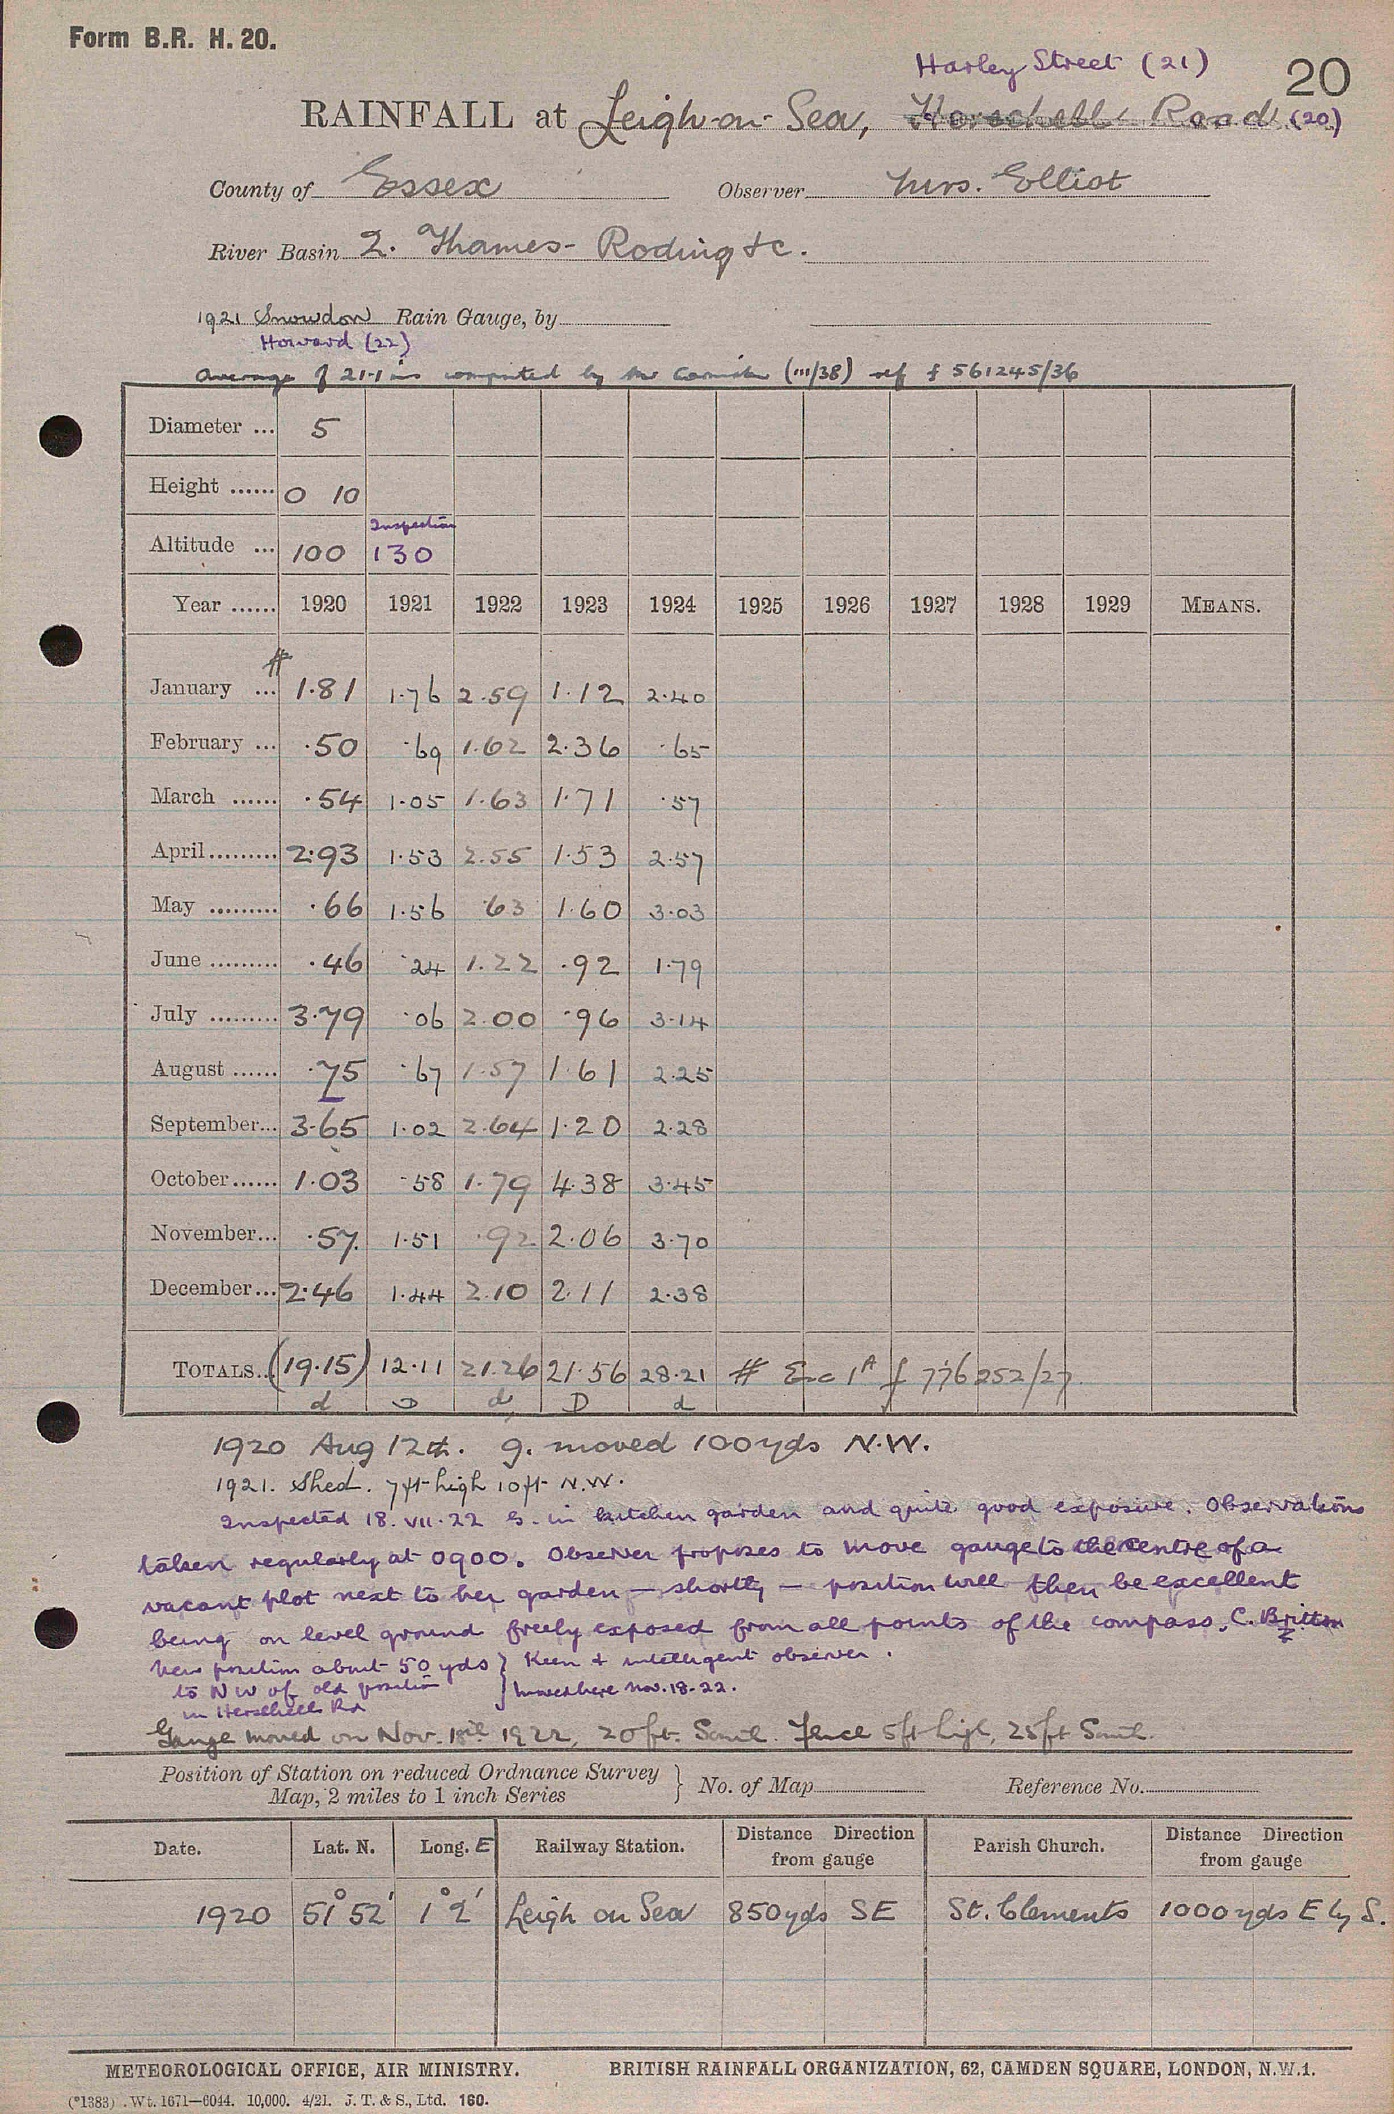 Form B.R. H. 20.
Harley Street (21)
20
RAINFALL at Leigh-on-Sea, Herschell Road (20)
County of Essex Observer Mrs. Elliot
River Basin 2. Thames - Roding &c.
1921 Snowdon Rain Gauge, by
Howard (22)
Average of 21.1 ins computed by Mr (III/38) ref f 561245/36
Diameter ... 5
Height ...... 0 10
Inspection
Altitude ... 100 130
Year ...... 1920 1921 1922 1923 1924 1925 1926 1927 1928 1929 MEANS.
#
January ... 1.81 1.76 2.59 1.12 2.40
February ... .50 .69 1.62 2.36 .65
March ...... .54 1.05 1.63 1.71 .57
April......... 2.93 1.53 2.55 1.53 2.57
May ......... .66 1.56 .63 1.60 3.03
June ......... .46 .24 1.22 .92 1.79
July ......... 3.79 .06 2.00 .96 3.14
August ...... .75 .67 1.57 1.61 2.25
September... 3.65 1.02 2.64 1.20 2.28
October...... 1.03 .58 1.79 4.38 3.45
November... .57 1.51 .92 2.06 3.70
December... 2.46 1.44 2.10 2.11 2.38
TOTALS... (19.15) 12.11 21.26 21.56 28.21 # Enc 1A f 776252/27
d D d D d
1920 Aug 12th. g. moved 100yds N.W.
1921. Shed. 7ft high 10ft N.W.
Inspected 18.VII.22 G. in kitchen garden and quite good exposure. Observations
taken regularly at 0900. Observer proposes to move gauge to the centre of a
vacant plot next to her garden — shortly — position will then be excellent
being on level ground freely exposed from all points of the compass. C. Britton
New position about 50 yds } Keen & intelligent observer.
to NW of old position } Moved here Nov. 18-22.
in Herschell Rd
Gauge moved on Nov. 18th 1922, 20ft. South. Fence 5ft high, 25ft South.
Position of Station on reduced Ordnance Survey } No. of Map Reference No.
Map, 2 miles to 1 inch Series
Date. Lat. N. Long. E Railway Station. Distance Direction from gauge Parish Church. Distance Direction from gauge
1920 51° 52' 1° 2' Leigh on Sea 850yds SE St. Clements 1000yds E by S.
METEOROLOGICAL OFFICE, AIR MINISTRY. BRITISH RAINFALL ORGANIZATION, 62, CAMDEN SQUARE, LONDON, N.W.1.
(*1383) . Wt. 1671—6044. 10,000. 4/21. J. T. & S., Ltd. 160.